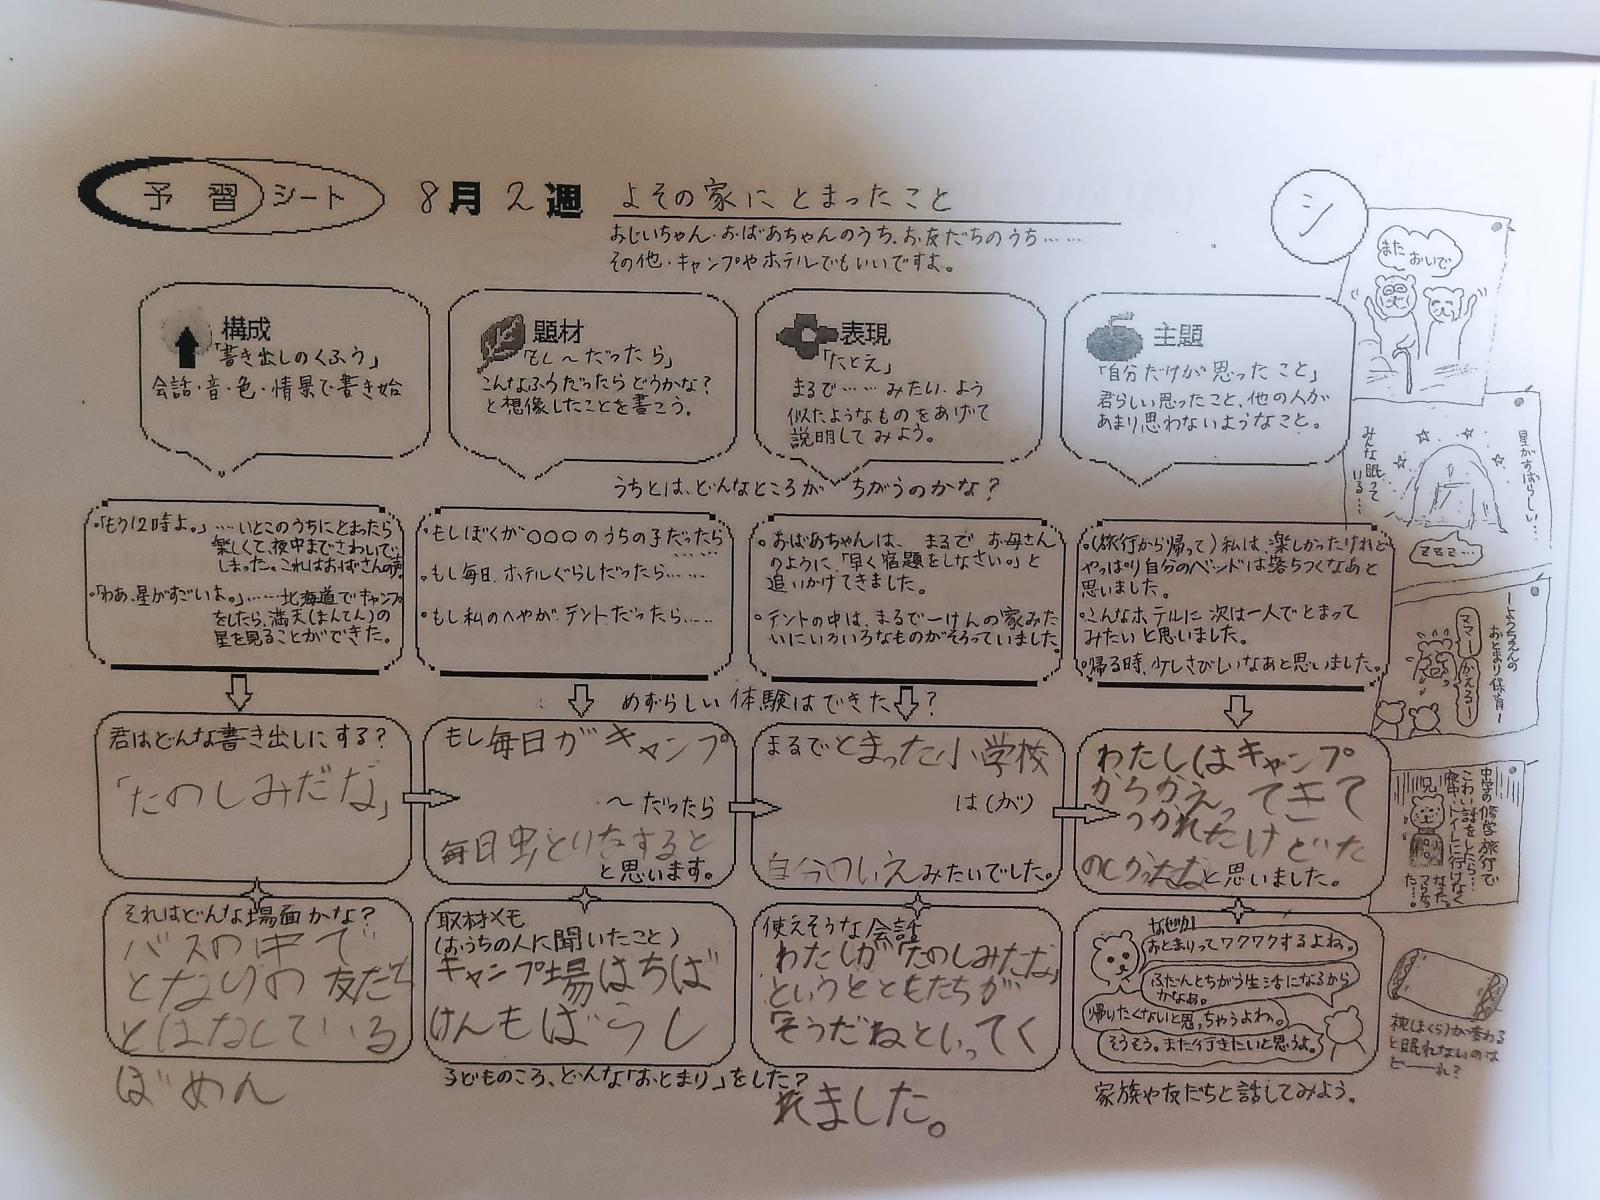 予習シート
8月2週 よその家にとまったこと
おじいちゃん・おばあちゃんのうち、お友だちのうち……
その他・キャンプやホテルでもいいですよ。
シ
構成
「書き出しのくふう」
会話・音・色・情景で書き始
題材
「もし〜だったら」
こんなふうだったらどうかな?
と想像したことを書こう。
表現
「たとえ」
まるで……みたい・よう
似たようなものをあげて
説明してみよう。
主題
「自分だけが思ったこと」
君らしい思ったこと、他の人が
あまり思わないようなこと。
うちとは、どんなところが ちがうのかな?
・「もう12時よ。」…いとこのうちにとまったら
楽しくて、夜中までさわいで
しまった。これはおばさんの声
・「わあ、星がすごいよ。」……北海道でキャンプ
をしたら、満天(まんてん)の
星を見ることができた。
・もしぼくが〇〇〇のうちの子だったら
……
・もし毎日、ホテルぐらしだったら……
・もし私のへやが、テントだったら……
・おばあちゃんは、まるで お母さん
のように、「早く宿題をしなさい。」と
追いかけてきました。
・テントの中は、まるで一けんの家みた
いにいろいろなものがそろっていました。
・(旅行から帰って)私は、楽しかったけれど
やっぱり自分のベッドは落ちつくなあと
思いました。
・こんなホテルに 次は一人でとまって
みたいと思いました。
・帰る時、少しさびしいなあと思いました。
めずらしい体験はできたかな?
君はどんな書き出しにする?
「たのしみだな」
もし毎日がキャンプ
〜だったら
毎日虫とりをすると
と思います。
まるでとまった小学校
は(が)
自分のいえみたいでした。
わたしはキャンプ
からかえってきて
つかれたけどた
のしかったなと思いました。
それはどんな場面かな?
バスの中で
となりの友だち
とはなしている
ばめん
取材メモ
(おうちの人に聞いたこと)
キャンプ場はちば
けんもばらし
子どものころ、どんな「おとまり」をした?
使えそうな会話
わたしが「たのしみだな」
というとともだちが
「そうだねといってく
れました。
なぜか
おとまりってワクワクするよね。
ふだんとちがう生活になるから
かなぁ。
帰りたくないと思っちゃうよね。
そうそう。また行きたいと思うよ。
家族や友だちと話してみよう。
また おいで
星がすばらしい…
みんな眠って
いる…
ZZZZ…
ーようちえんの
おとまり保育ー
ママーかえるー
中学の修学旅行で
こわい話をしたら…
夜中、トイレに行けなく
なって
つらかった…。
兄
枕(まくら)が変わる
と眠れないのは
だーれ?